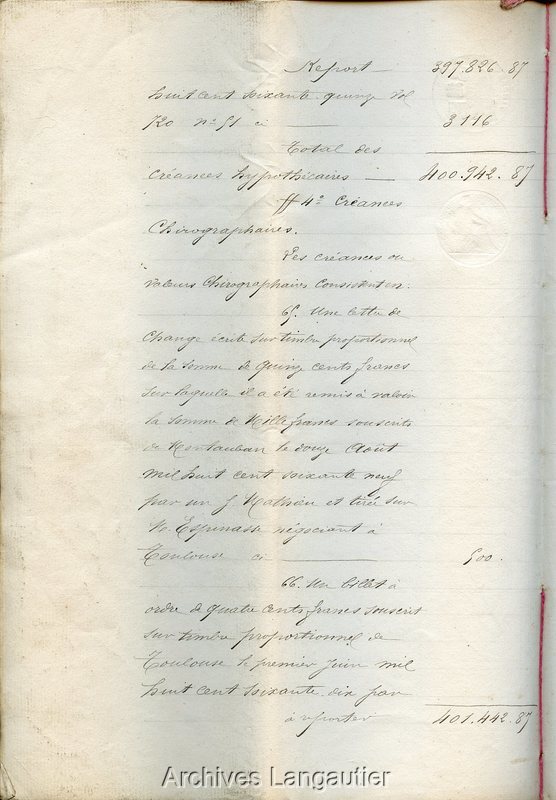 Report — 397.826.87
huit cent soixante quinze vol
720 n° 51 ci — 3116
Total des
créances hypothécaires — 400.942.87
ff 4° Créances
Chirographaires.
Les créances ou
valeurs Chirographaires consistent en.
65. Une lettre de
change écrite sur timbre proportionnel
de la somme de quinze cents francs
sur laquelle il a été remis à valoir
la somme de Mille francs souscrite
de Montauban le douze Août
mil huit cent soixante neuf
par un J Mathieu et tirée sur
M. Espinasse négociant à
Toulouse ci — 500.
66. Un billet à
ordre de quatre cents francs souscrit
sur timbre proportionnel de
Toulouse le premier Juin mil
huit cent soixante dix par
à reporter 401.442.87
Archives Langautier